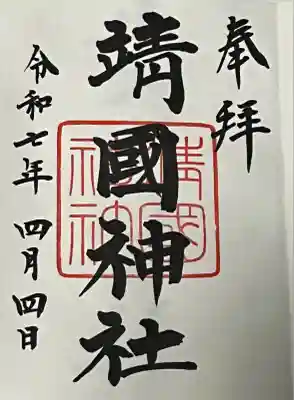 奉拝
靖國神社
靖國神社
令和七年 四月四日